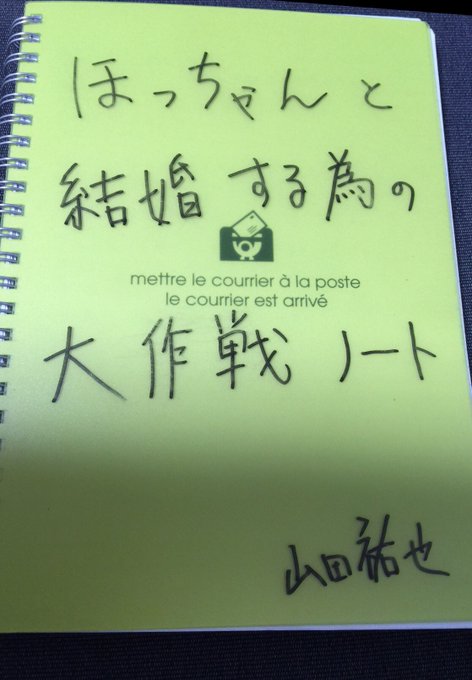 ほっちゃんと
結婚する為の
mettre le courrier à la poste
le courrier est arrivé
大作戦ノート
山田祐也